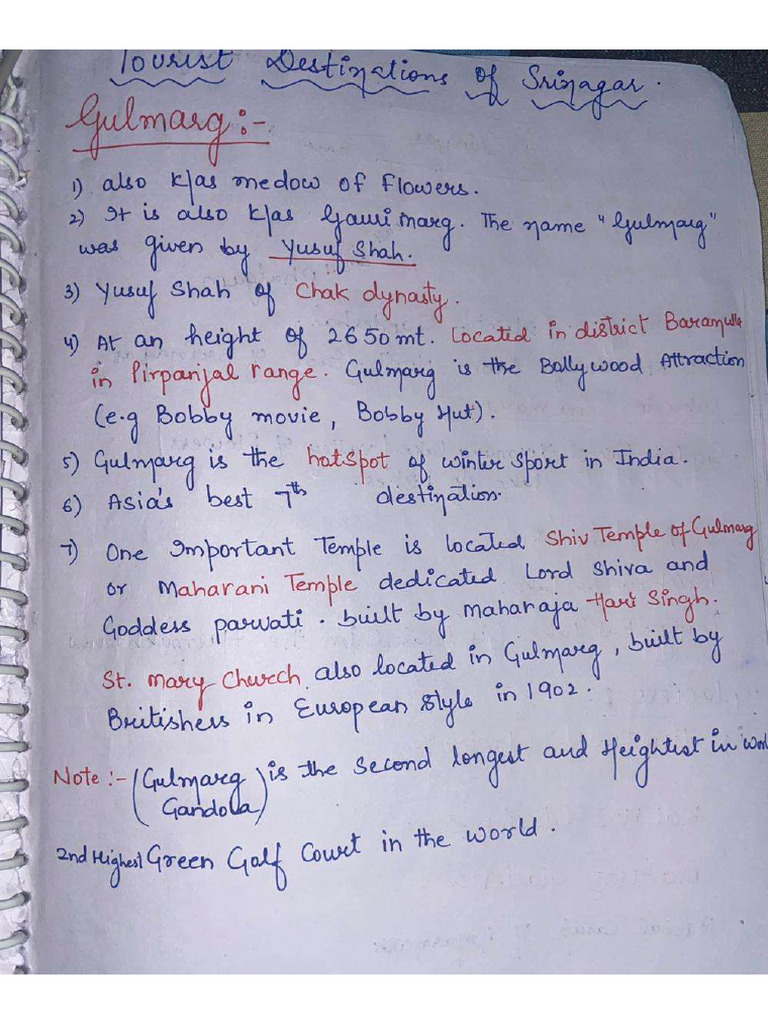 Tourist Destinations of Srinagar.
Gulmarg:-
1) also k/as medow of Flowers.
2) It is also k/as Gauri marg. The name "Gulmarg"
was given by Yusuf Shah.
3) Yusuf Shah of Chak dynasty.
4) At an height of 2650 mt. Located in district Baramulla
in Pirpanjal range. Gulmarg is the Bollywood Attraction
(e.g Bobby movie, Bobby Hut).
5) Gulmarg is the hotspot of winter sport in India.
6) Asia's best 7th destination.
7) One Important Temple is located Shiv Temple of Gulmarg
or Maharani Temple dedicated Lord Shiva and
Goddess parvati. built by Maharaja Hari Singh.
St. Mary Church also located in Gulmarg, built by
Britishers in European style in 1902.
Note:- (Gulmarg Gandola) is the second longest and Heightest in world
2nd Highest Green Golf Court in the world.